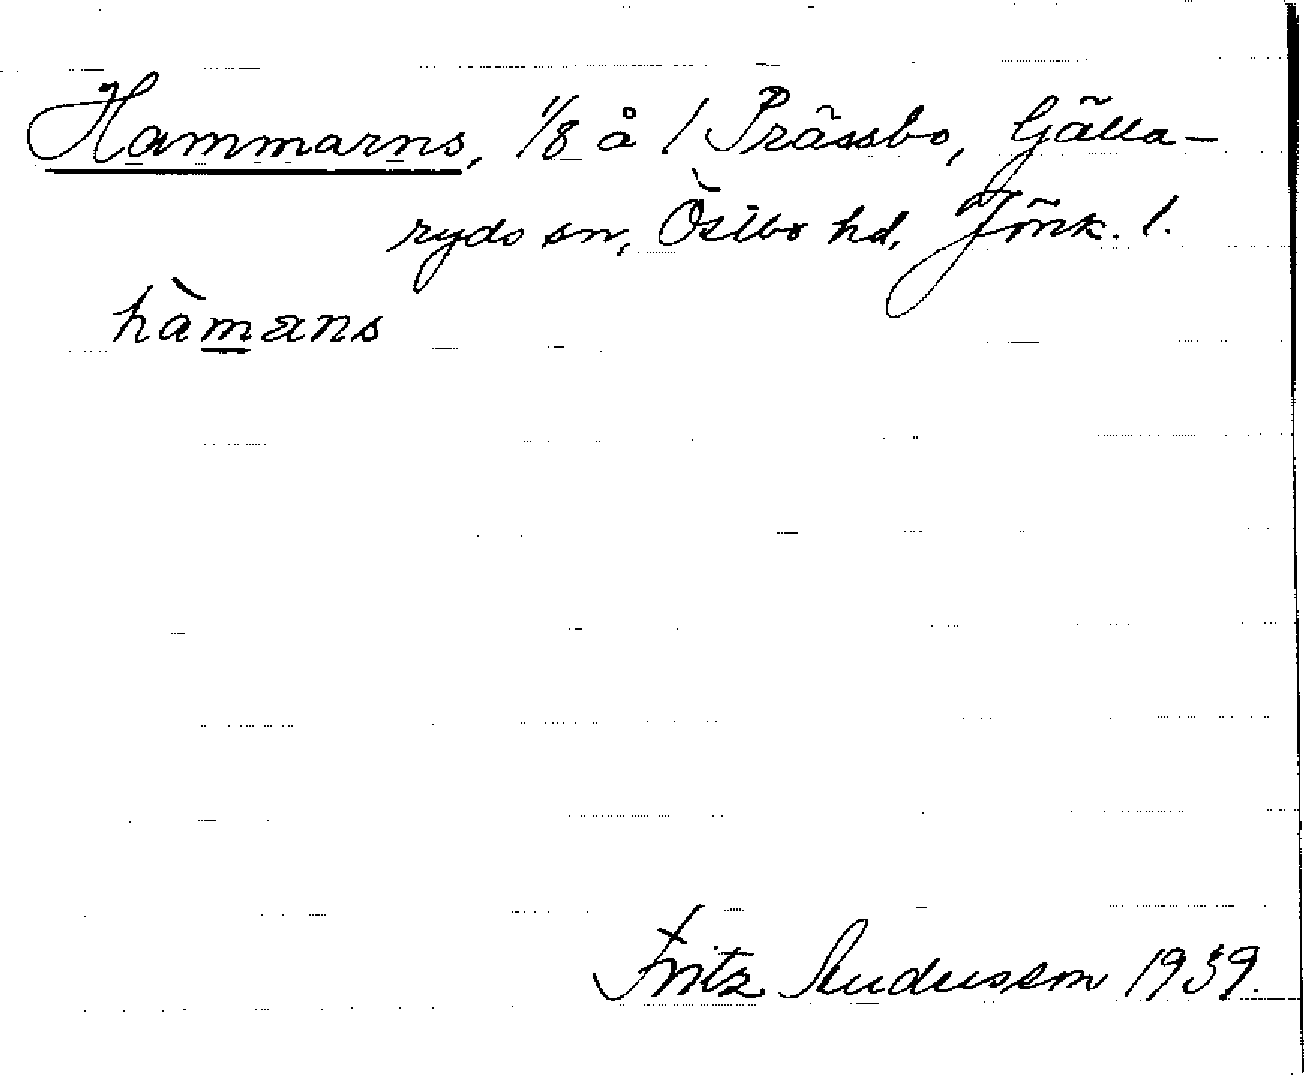 Hammarns, 1/8 å 1 Prässbo, Gälla-
ryds sn, Östbo hd, Jönk. l.
hàmans
Fritz Andersson 1939.